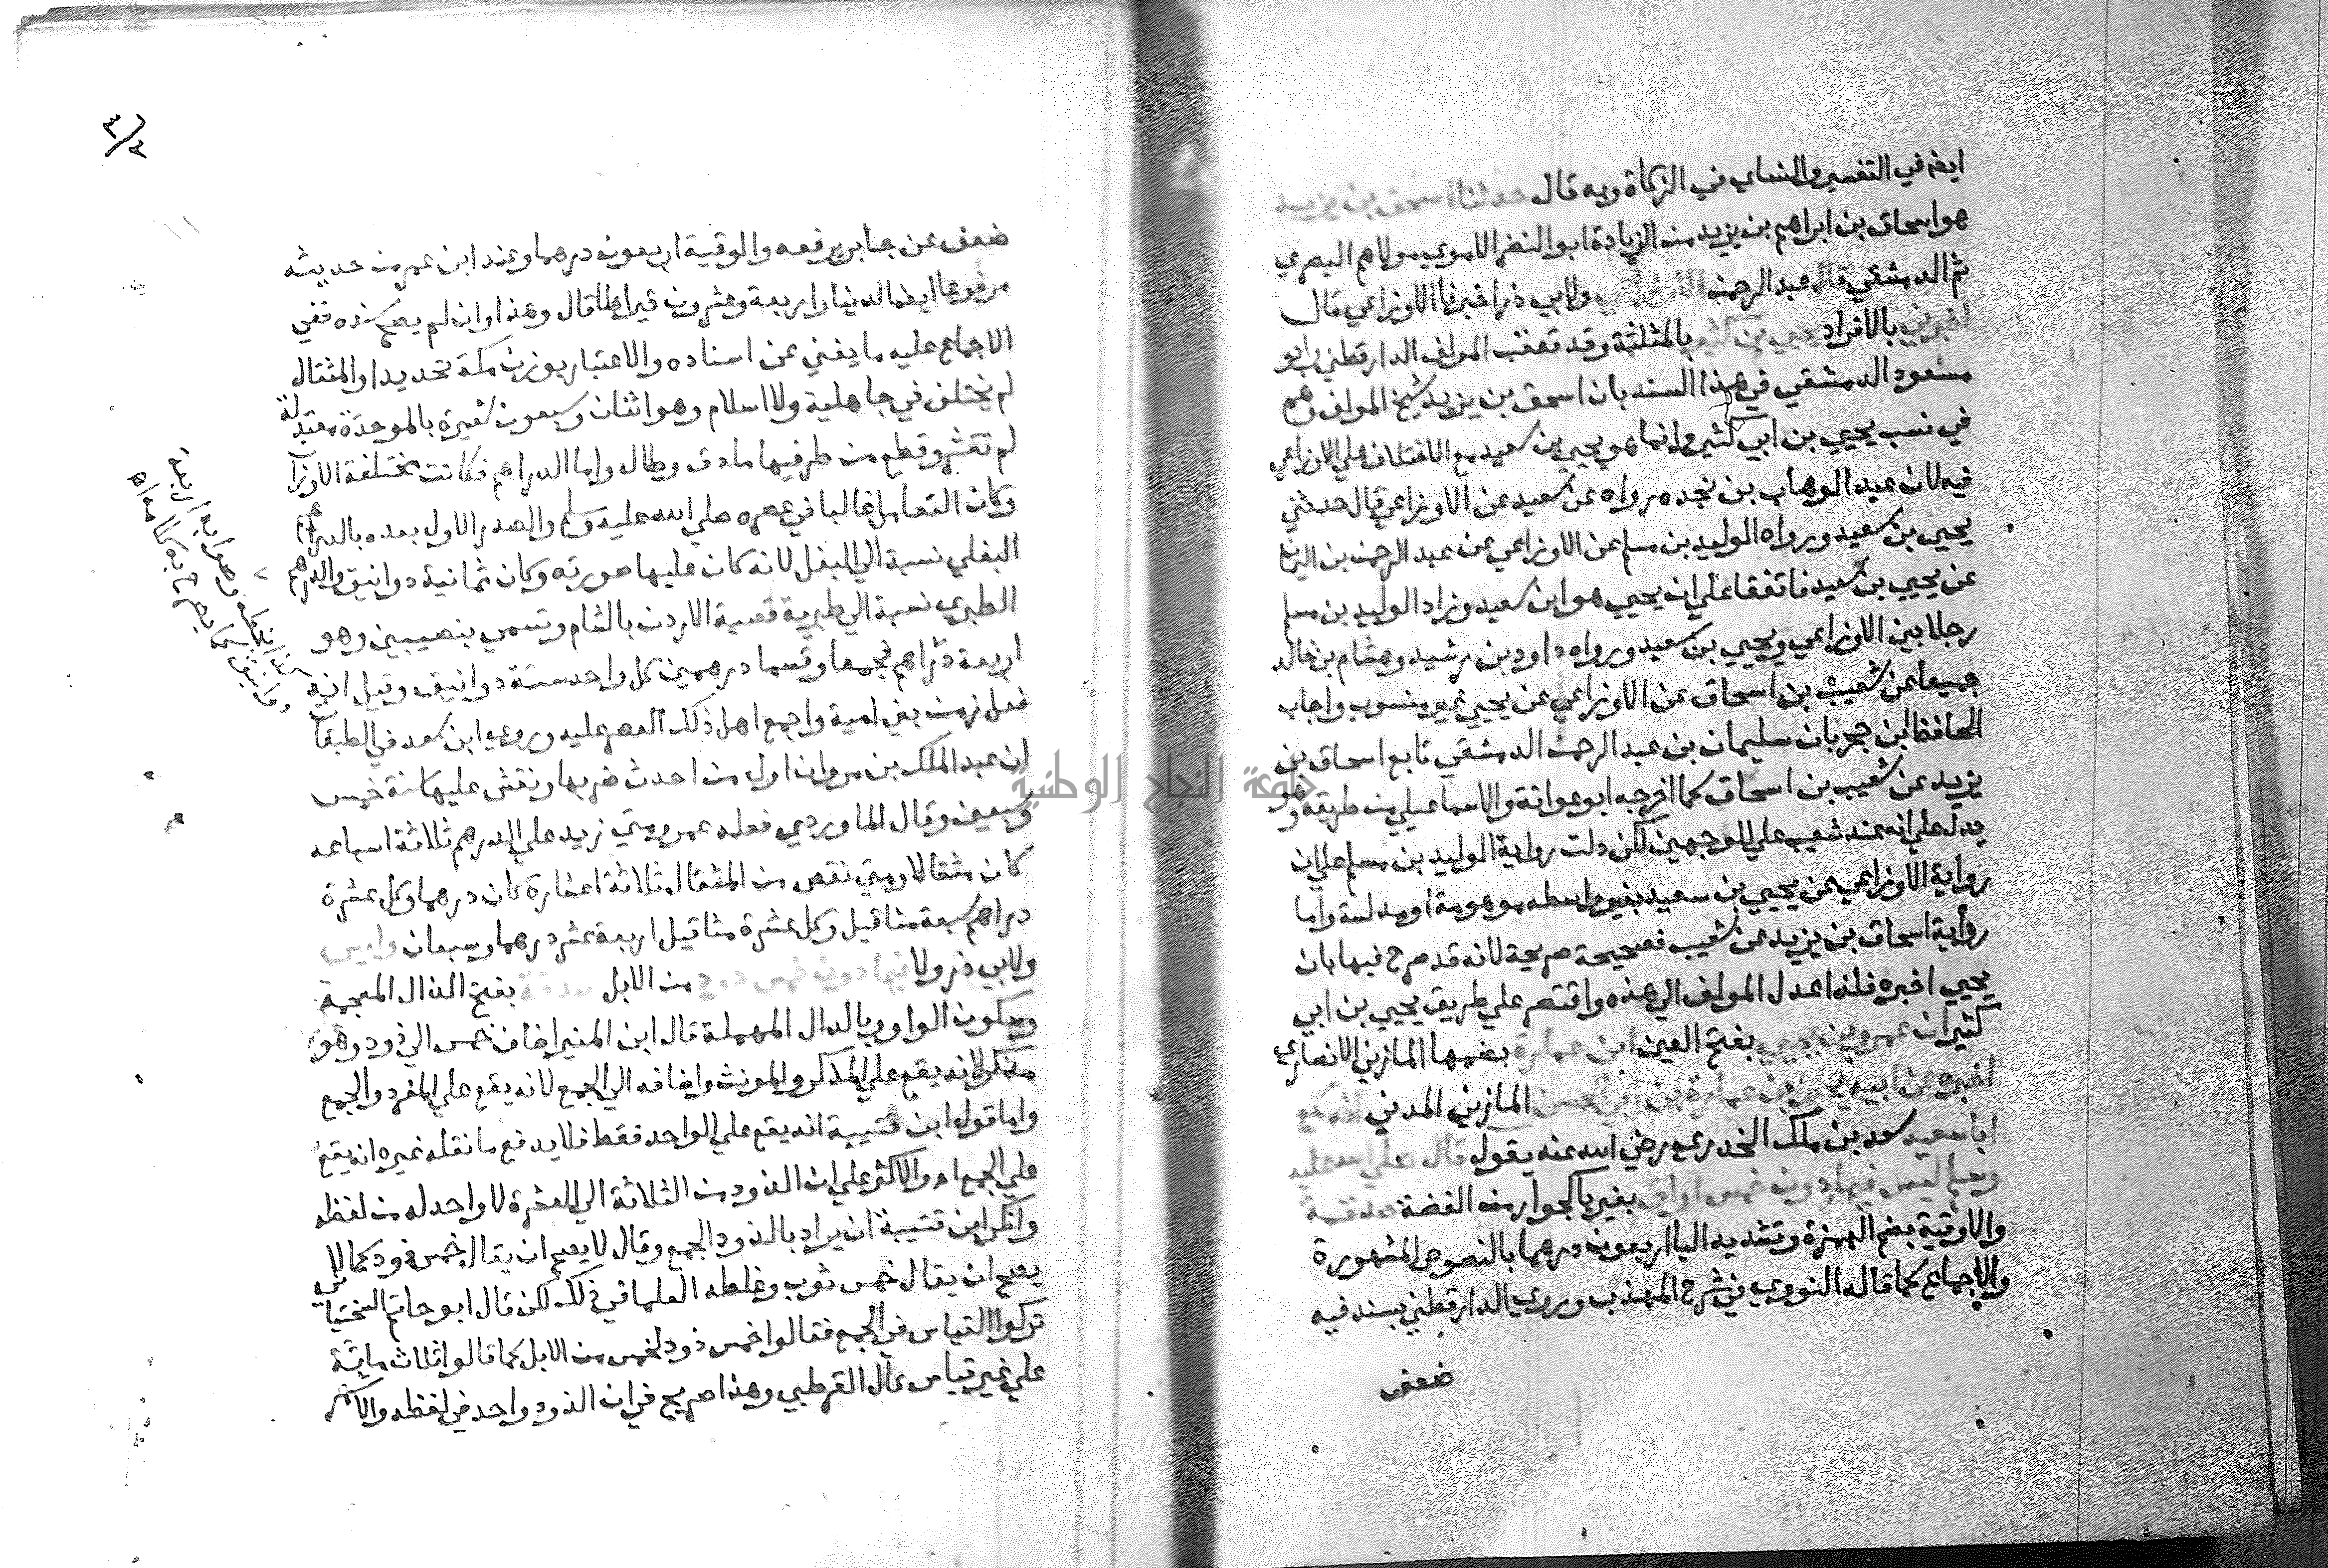 ايضا في التفسير والنساي في الزكاة وبه قال حدثنا اسحق بن يزيد
هو اسحاق بن ابراهيم بن يزيد من الزيادة ابو النضر الاموي مولاهم البصري
ثم الدمشقي قال عبد الرحمن الاوزاعي ولابي ذر اخبرنا الاوزاعي قال
اخبرني بالافراد يحيى بن كثير بالمثلثة وقد تعقب المولف الدارقطني وابو
مسعود الدمشقي في هذا السند بان اسحق بن يزيد شيخ المولف وهم
في نسب يحيي بن ابي كثير وانما هو يحيي بن سعيد مع الاختلاف علي الاوزاعي
فيه لان عبد الوهاب بن نجده رواه عن سعيد عن الاوزاعي قال حدثني
يحيي بن سعيد ورواه الوليد بن مسلم عن الاوزاعي عن عبد الرحمن بن اليمان
عن يحيي بن سعيد فاتفقا علي ان يحيي هو ابن سعيد وزاد الوليد بن مسلم
رجلا بين الاوزاعي ويحيي بن سعيد ورواه داود بن رشيد وهشام بن خالد
جميعا عن شعيب بن اسحاق عن الاوزاعي عن يحيي غير منسوب واجاب
الحافظ ابن حجر بان سليمان بن عبد الرحمن الدمشقي تابع اسحاق بن
يزيد عن شعيب بن اسحاق كما اخرجه ابو عوانة والاسماعيلي من طريقه وهو
يدل علي انه عند شعيب علي الوجهين لكن دلت رواية الوليد بن مسلم علي ان
رواية الاوزاعي عن يحيي بن سعيد بغير واسطه موهومة او مدلسة واما
رواية اسحاق بن يزيد عن شعيب فصحيحة صريحة لانه قد صرح فيها بان
يحيي اخبره فلذا عدل المولف الي هذه واقتصر علي طريق يحيي بن ابي
كثير ان عمرو بن يحيي بفتح العين ابن عمارة بضمها المازني الانصاري
اخبره عن ابيه يحيى بن عمارة بن ابي الحسن المازني المدني انه سمع
ابا سعيد سعد بن ملك الخدري رضي الله عنه يقول قال صلى الله عليه
وسلم ليس فيما دون خمس اواق بغير يا كجوار من الفضة صدقة
والاوقية بضم الهمزة وتشديد اليا اربعون درهما بالنصوص المشهورة
والاجماع كما قاله النووي في شرح المهذب وروي الدارقطني بسند فيه
ضعف
ضعف عن جابر يرفعه والوقية اربعون درهما وعند ابن عمر من حديثه
مرفوعا ايضا الدينار اربعة وعشرون قيراطا قال وهذا وان لم يصح سنده ففي
الاجماع عليه ما يغني عن اسناده والاعتبار بوزن مكة تحديدا والمثقال
لم يختلف في جاهلية ولا اسلام وهو اثنان وسبعون شعيرة بالموحدة معتدلة
لم تقشر وقطع من طرفيها ما دق وطال واما الدراهم فكانت مختلفة الاوزان
وكان التعامل غالبا في عصره صلي الله عليه وسلم والصدر الاول بعده بالدراهم
البغلي نسبة الي البغل لانه كان عليها صورته وكان ثمانية دوانيق والدرهم
الطبري نسبة الي طبرية قصبة الاردن بالشام وتسمي بنصيبين وهو
اربعة دراهم فجمعا وقسما درهمين كل واحد ستة دوانيق وقيل انه
فعل زمن بني امية واجمع اهل ذلك العصر عليه وروي ابن سعد في الطبقات
ان عبد الملك بن مروان اول من احدث ضربها ونقش عليها سنة خمس
وسبعين وقال الماوردي فعله عمر ومتي زيد علي الدرهم ثلاثة اسباعه
كان مثقالا ومتي نقص من المثقال ثلاثة اعشاره كان درهما وكل عشرة
دراهم سبعة مثاقيل وكل عشرة مثاقيل اربعة عشر درهما وسبعان وليس
ولابي ذر ولا فيما دون خمس ذود من الابل صدقة بفتح الذال المعجمة
وسكون الواو وبالدال المهملة قال ابن المنير اضاف خمس الي ذود وهو
مذكر لانه يقع علي المذكر والمونث واضافه الي الجمع لانه يقع علي المفرد والجمع
واما قول ابن قتيبة انه يقع علي الواحد فقط فلا يدفع ما نقله غيره انه يقع
علي الجمع اه والاكثر علي ان الذود من الثلاثة الي العشرة لا واحد له من لفظه
وانكر ابن قتيبة ان يراد بالذود الجمع وقال لا يصح ان يقال خمس ذود كما لا
يصح ان يقال خمس ثوب وغلطه العلما في ذلك لكن قال ابو حاتم السختياني
تركوا القياس في الجمع فقالوا خمس ذود لخمس من الابل كما قالوا ثلاث ماية
علي غير قياس قال القرطبي وهذا صريح في ان الذود واحد في لفظه والاكثر
وصوابه اربعة
دوانيق كما يصرح به كلامه اه